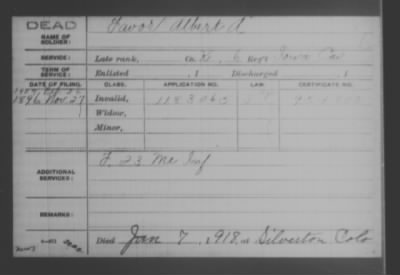 DEAD
NAME OF SOLDIER: Favor Albert A
SERVICE: Late rank, Co. K, 6 Reg't Iowa Cav
TERM OF SERVICE: Enlisted , 1 Discharged , 1
DATE OF FILING. CLASS. APPLICATION NO. LAW. CERTIFICATE NO.
1896 Nov. 27 Invalid,
Widow,
Minor,
ADDITIONAL SERVICES: F. 23 Me Inf
REMARKS:
Died Jan 7, 1918, at Silverton Colo